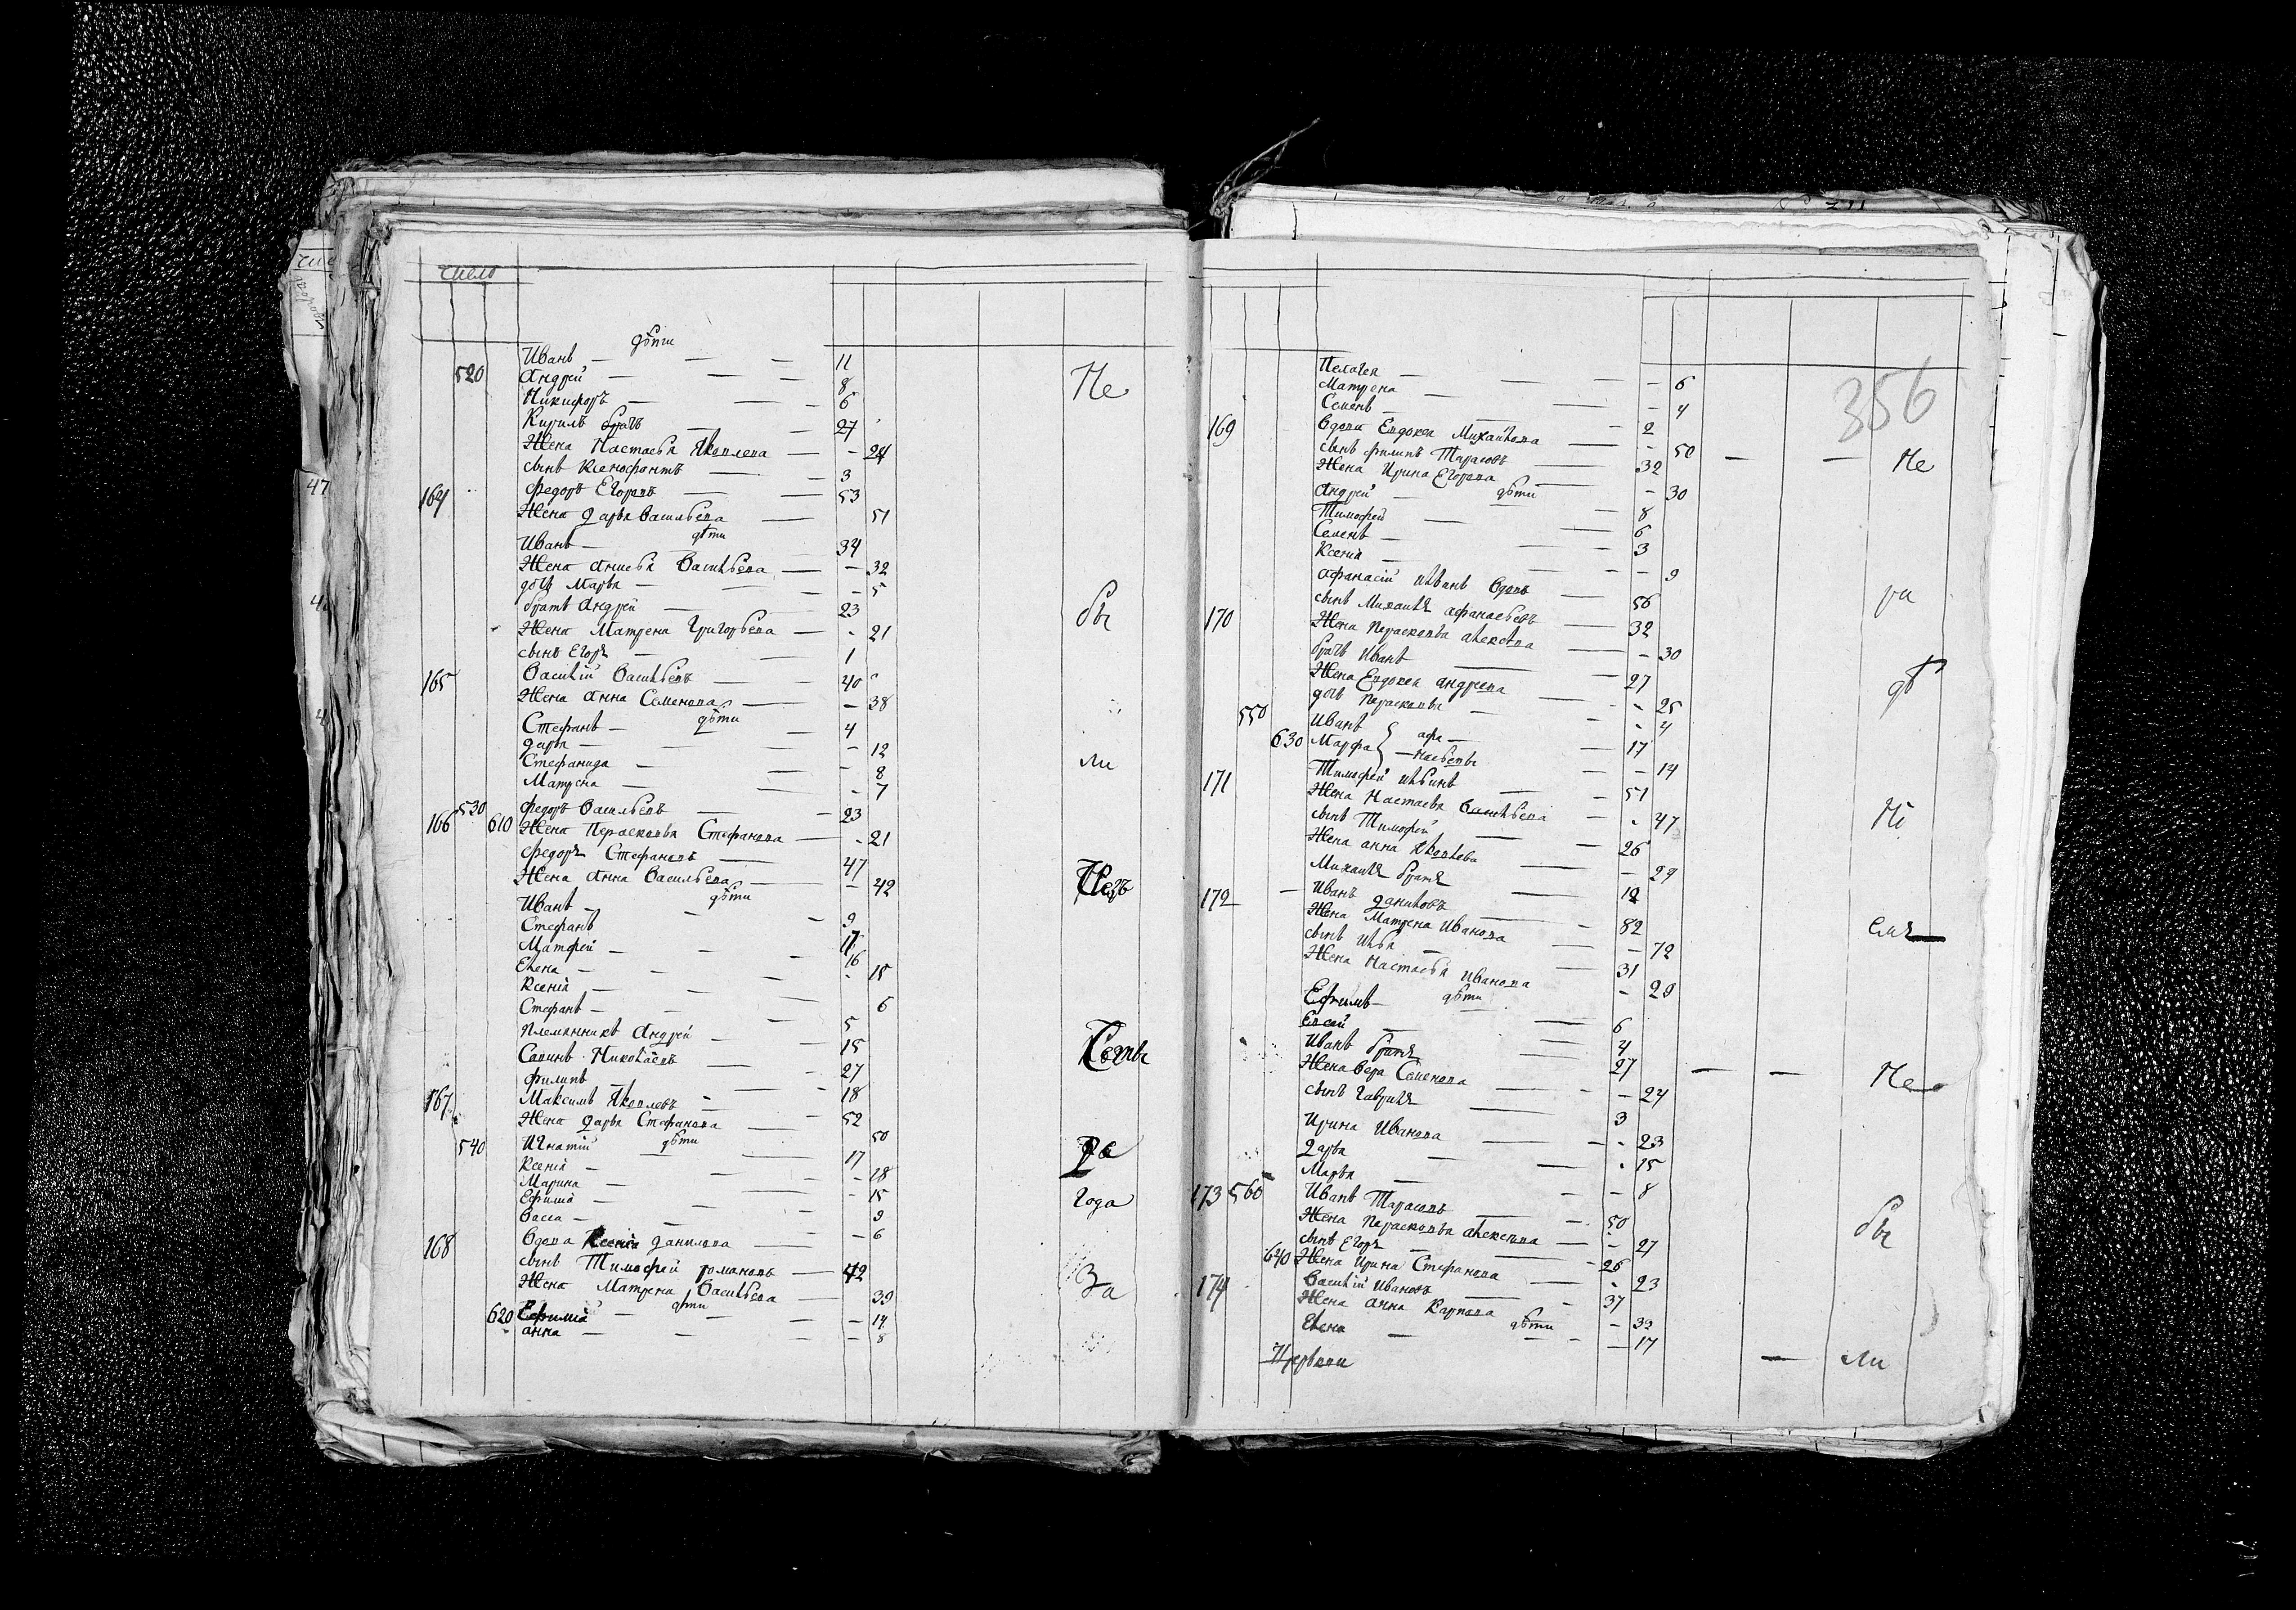 число
дѣти
Иванъ — — — 11
520 Андрей — — — 8 Не
Никифоръ — — — 6
Кирилъ братъ — — 27
Жена Настасья Яковлева — - 24
сынъ Ксенофонтъ — — 3
164 Федоръ Егоровъ — — 53
Жена Дарья Васильева — 51
дѣти
Иванъ — — 34
Жена Анисья Васильева — - 32
дочь Марья — — - 5
братъ Андрей — — 23 бы
Жена Матрена Григорьева — - 21
сынъ Егоръ — — 1
165 Василій Васильевъ — — 40
Жена Анна Семенова — - 38
дѣти
Стефанъ — — 4
Дарья — — — - 12
Стефанида — — - 8 ли
Матрена — — - 7
166 530 Федоръ Васильевъ — — 23
610 Жена Перасковья Стефанова — - 21
Федоръ Стефановъ — 47
Жена Анна Васильева — - 42
дѣти
Иванъ — — — 9
Стефанъ 17
Матфей — — — 16
Елена — — — - 15
Ксенія — — 6
Стефанъ — — — 5
племянникъ Андрей — — 15
Савинъ Николаевъ — — 27
Филипъ — — 18
167 Максимъ Яковлевъ — — 52
Жена Дарья Стефанова — 50
дѣти
540 Игнатій — 17
Ксенія — — — - 18
Марина — — — - 15
Ефимія — — — 9 года
Васса — — — - 6
168 Вдова Ксенія Данилова —
сынъ Тимофей Романовъ — 42
Жена Матрена Васильева — 39 За
дѣти
620 Ефимія — — — 14
Анна — — — 8
356
Пелагея — — — - 6
Матрена — — - 4
Семенъ — — - 2
169 Вдова Евдокея Михайлова — - 50 — — Не
сынъ Филипъ Тарасовъ — 32
Жена Ирина Егорова — - 30
дѣти
Андрей — — 8
Тимофей — — 6
Семенъ — — — 3
Ксенія — — — - 9
Афанасій Ильинъ Вдовъ — 56
170 сынъ Михаилъ Афанасьевъ — 32
Жена Перасковья Алексѣева — - 30
братъ Иванъ — 27
Жена Евдокея Андреева — - 25
дочь Перасковья — - 4
550 Иванъ афа — 17
630 Марфа — насьевы — 14
171 Тимофей Ильинъ — 51
Жена Настасья Васильева — - 47
сынъ Тимофей — 26
Жена Анна Яковлева — - 24
Михаилъ братъ — 12
172 — Иванъ Даниловъ — 82
Жена Матрена Иванова — - 72
сынъ Илья — — 31
Жена Настасья Иванова — 29
дѣти
Ефимъ — — 6
Евсей — — 4
Иванъ братъ — 27 — — Не
Жена Вера Семенова — - 24
сынъ Гаврилъ — 3
Ирина Иванова — - 23
Дарья — — - 15
Марья — — - 8
173 560 Иванъ Тарасовъ — - 50
Жена Перасковья Алексѣева — - 27 бы
сынъ Егоръ — — 26
640 Жена Ирина Стефанова — - 23
174 Василій Ивановъ — - 37
Жена Анна Карпова — - 33
дѣти
Елена — — — 17
— ли